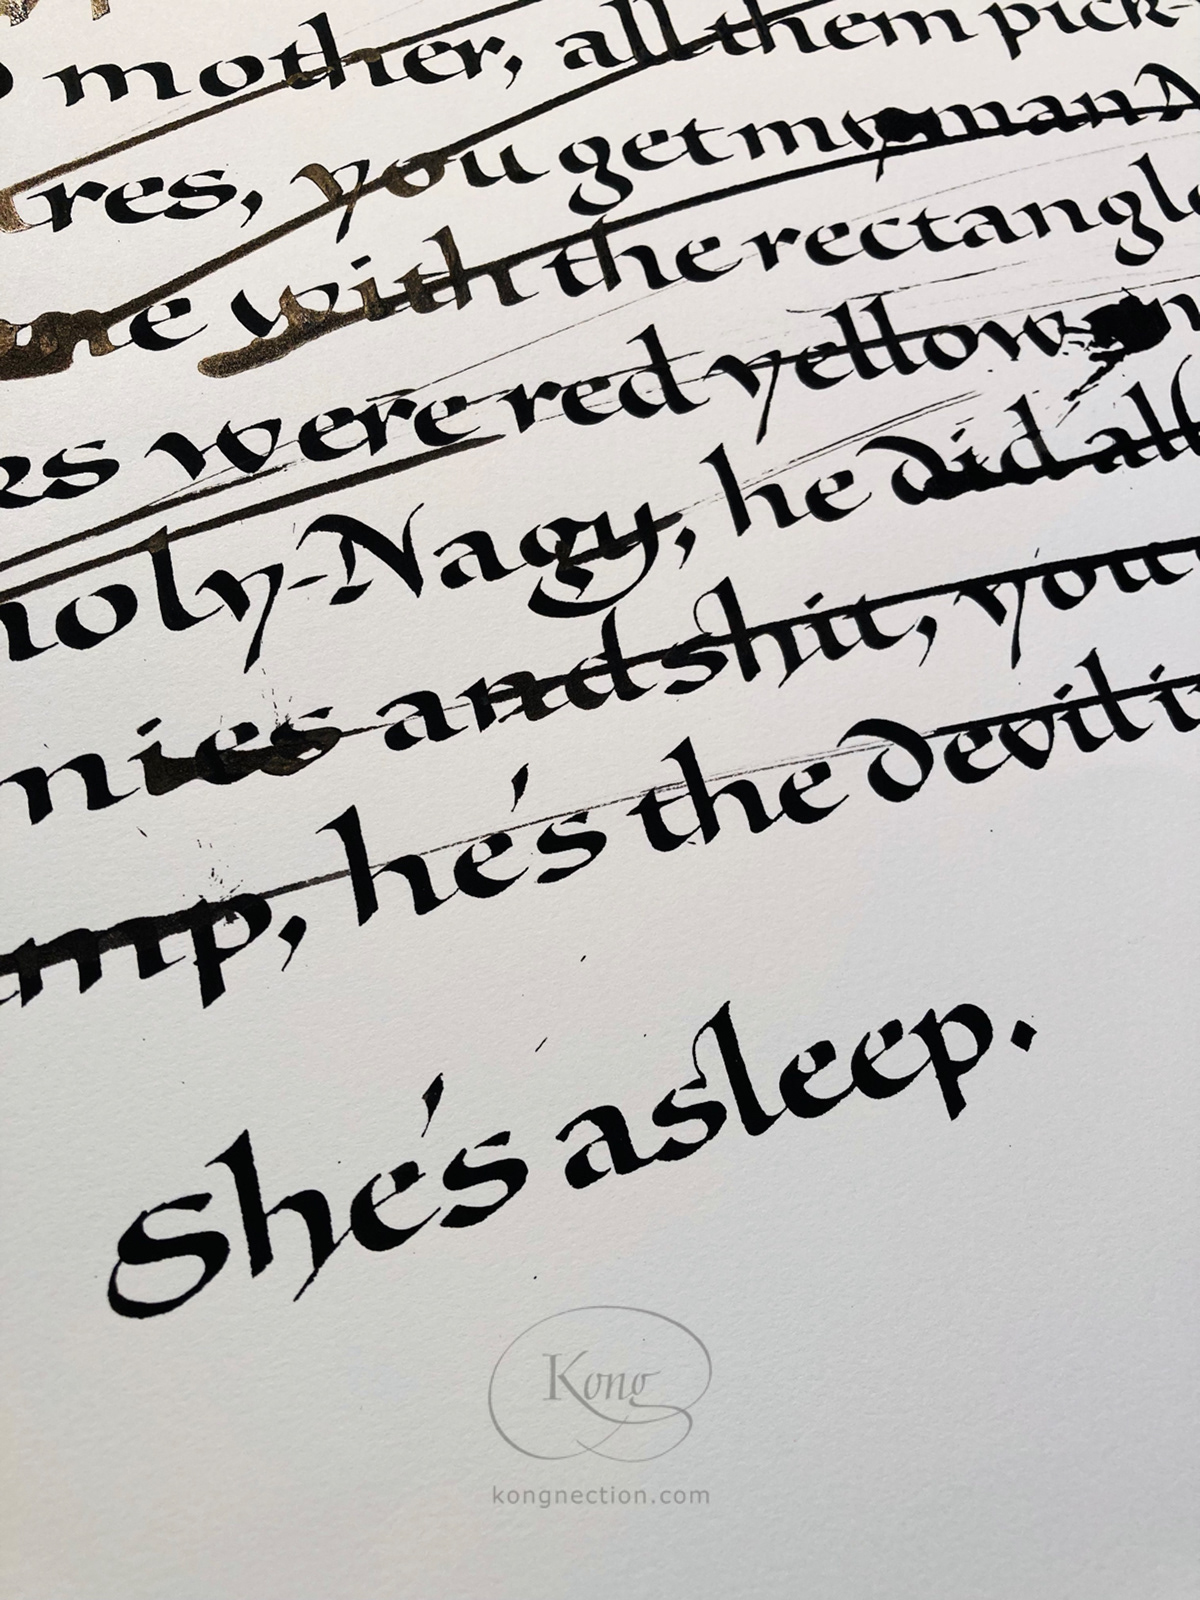 mother, all them pick-
res, you get my man
with the rectangle
were red yellow
holy-Nagy, he did all
nies and shit, you
mp, he's the devil i
She's asleep.
Kong
kongnection.com